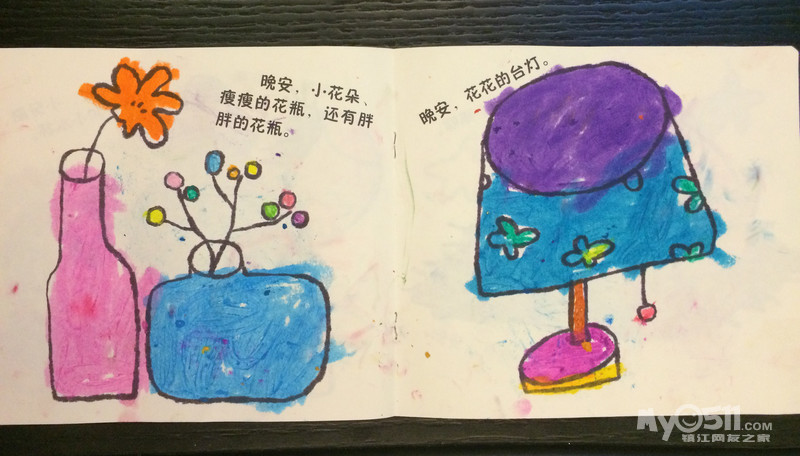 晚安，小花朵、
瘦瘦的花瓶，还有胖
胖的花瓶。
晚安，花花的台灯。
MY0511.COM
镇江网友之家